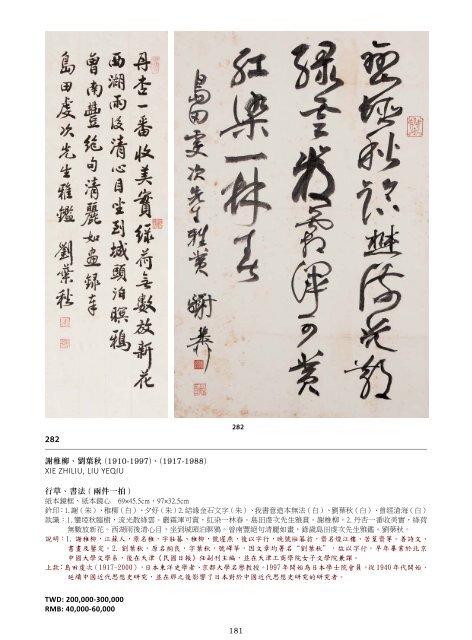 巒埡秋臨樹流光散
綠雲嚴霜渾可賞
紅染一林春
島田虔次先生雅賞 謝稚柳
丹杏一番收美實綠荷無數放新花
西湖雨後清心目坐到城頭泊暝鴉
曾南豐絕句清麗如畫錄奉
島田虔次先生雅鑑 劉葉秋
282
282
謝稚柳、劉葉秋 (1910-1997)、(1917-1988)
XIE ZHILIU, LIU YEQIU
行草、書法(兩件一拍)
紙本鏡框、紙本鏡心 69x45.5cm,97x32.5cm
鈐印:1.謝(朱)、稚柳(白)、夕好(朱) 2.結緣金石文字(朱)、我書意造本無法(白)、劉葉秋(白)、曾經滄海(白)
款識:1.巒埡秋臨樹,流光散綠雲。嚴霜渾可賞,紅染一林春。島田虔次先生雅賞,謝稚柳。2.丹杏一番收美實,綠荷
無數放新花。西湖雨後清心目,坐到城頭泊暝鴉。曾南豐絕句清麗如畫,錄奉島田虔次先生雅鑑。劉葉秋。
說明:1.謝稚柳,江蘇人,原名稚,字稚柳,後以字行,晚號壯暮翁,齋名煙江樓、苦篁齋等。善詩文、
書畫及鑒定。2.劉葉秋,原名桐良,字葉秋,號嶧莘,因文章均署名"劉葉秋",故以字行。早年畢業於北京
中國大學文學系,後在天津《民國日報》任副刊主編,並在天津工商學院女子文學院兼課。
上款:島田虔次(1917-2000),日本東洋史學者,京都大學名譽教授。1997年開始為日本學士院會員。從1940年代開始,
延續中國近代思想史研究,並在師之後影響了日本對於中國近代思想史研究的研究者。
TWD: 200,000-300,000
RMB: 40,000-60,000
181